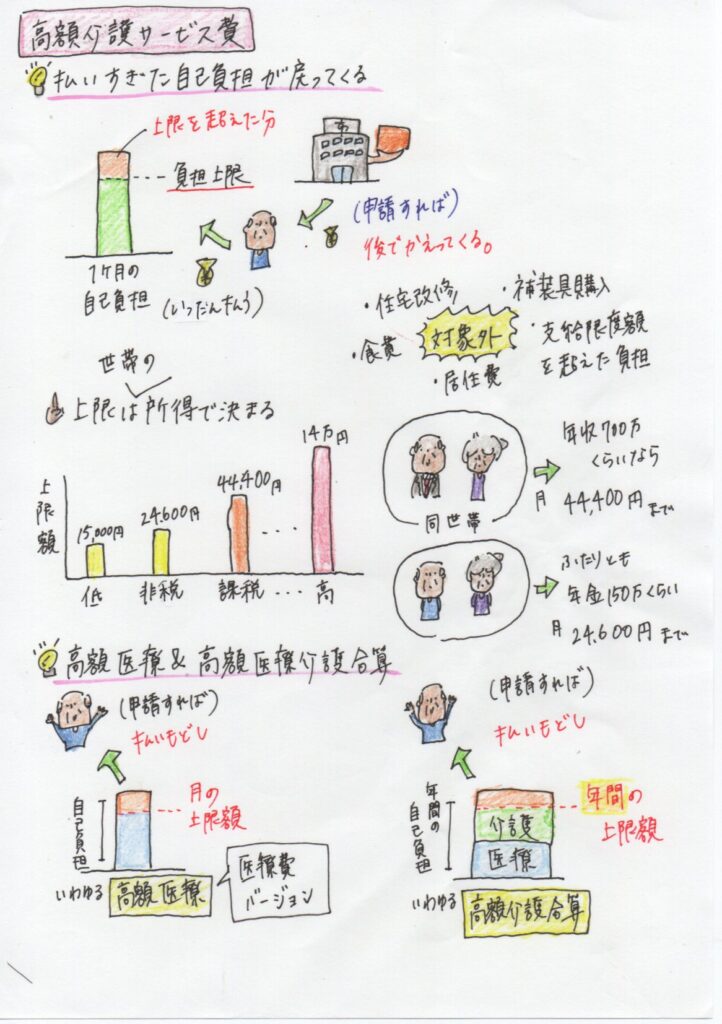 高額介護サービス費
払いすぎた自己負担が戻ってくる
上限を超えた分
負担上限
1ヶ月の
自己負担
(いったん払う)
市
(申請すれば)
後でかえってくる。
・住宅改修
・補装具購入
・食費
対象外
・支給限度額
を超えた負担
・居住費
世帯の
上限は所得で決まる
上限額
15,000円
24,600円
44,400円
・・・
14万円
低
非税
課税
・・・
高
同世帯
年収700万
くらいなら
月
44,400円まで
ふたりとも
年金150万くらい
月
24,600円まで
高額医療&高額医療介護合算
(申請すれば)
払いもどし
自己負担
月の
上限額
いわゆる
高額医療
医療費
バージョン
(申請すれば)
払いもどし
年間の
自己負担
介護
医療
年間の
上限額
いわゆる
高額介護合算